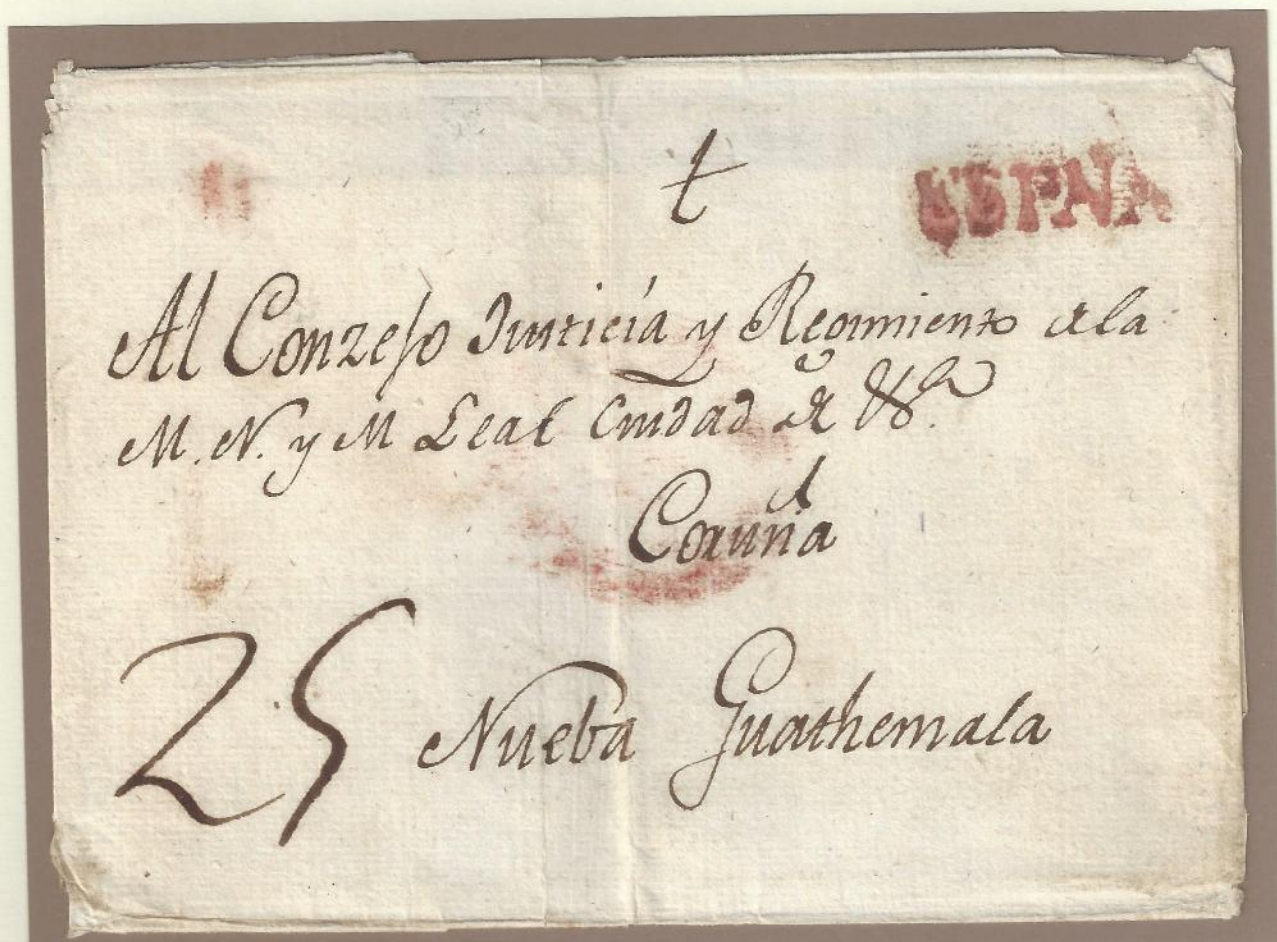 ESPNA
Al Conzejo Justicia y Regimiento de la
M. N. y M Leal Ciudad de
Coruña
25 Nueba Guathemala